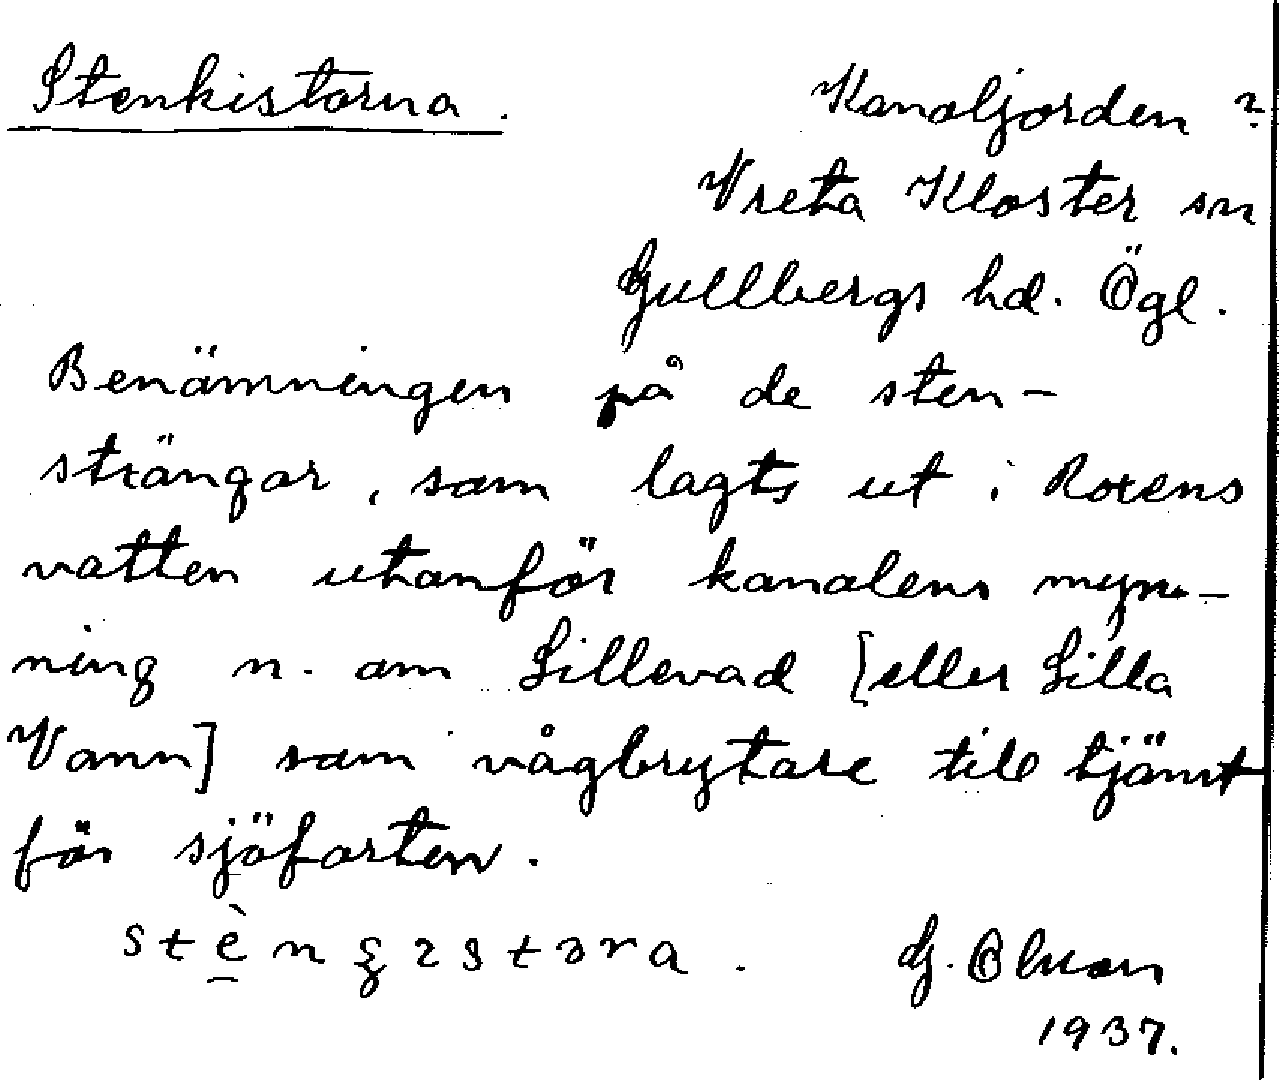 Stenkistorna.
Kanaljorden?
Vreta Kloster sn
Gullbergs hd. Ögl.
Benämningen på de sten-
strängar, som lagts ut i Roxens
vatten utanför kanalens myn-
ning n. om Lillevad [eller Lilla
Vann] som vågbrytare till tjänst
för sjöfarten.
G. Olsson
1937.